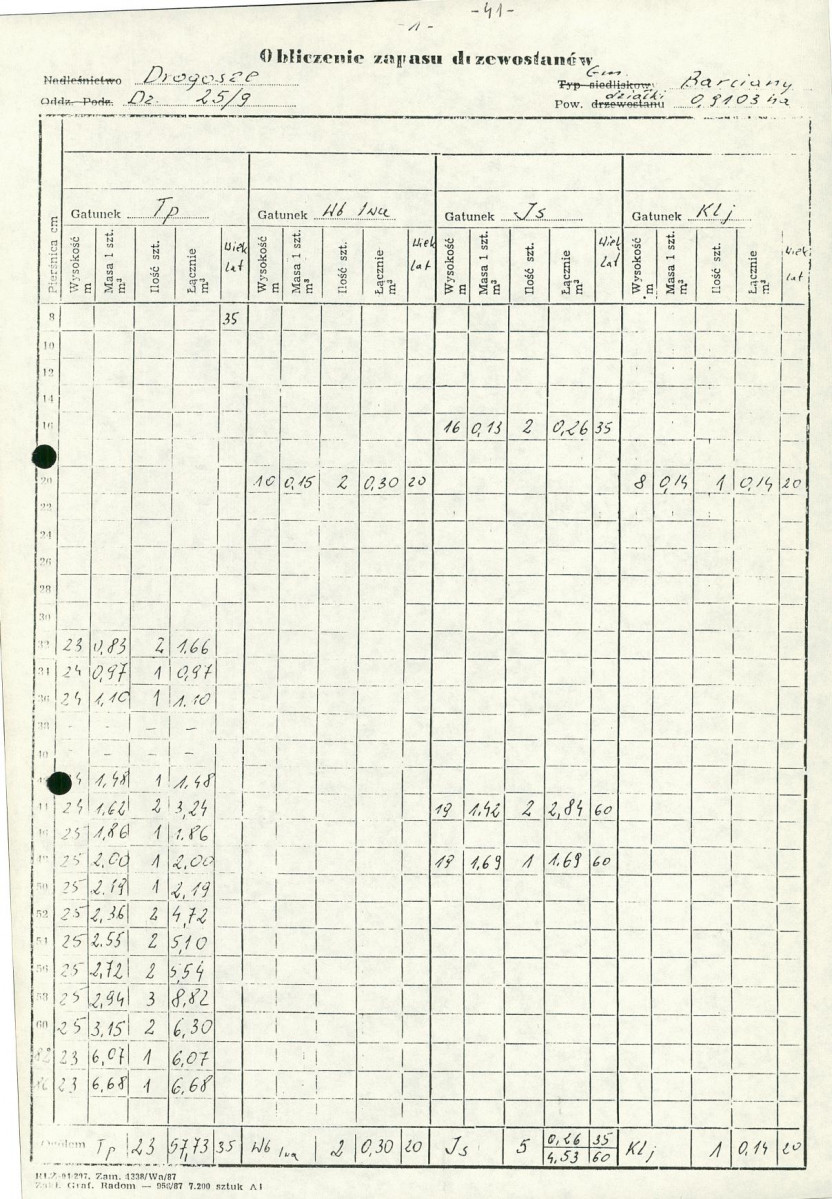 - 1 - -41-
Obliczenie zapasu drzewostanów
Nadleśnictwo Drogosze Gm. Typ siedliskow. Barciany
Oddz. Podz. Dz. 25/9 Pow. drzewostanu działki 0,9103 ha
Gatunek Tp Gatunek Wb Iwa Gatunek Js Gatunek Klj
Pierśnica cm Wysokość m Masa 1 szt. m³ Ilość szt. Łącznie m³ Wiek lat Wysokość m Masa 1 szt. m³ Ilość szt. Łącznie m³ Wiek lat Wysokość m Masa 1 szt. m³ Ilość szt. Łącznie m³ Wiek lat Wysokość m Masa 1 szt. m³ Ilość szt. Łącznie m³ Wiek lat
8 35
10
12
14
16 16 0,13 2 0,26 35
20 10 0,15 2 0,30 20 8 0,14 1 0,14 20
22
24
26
28
30
32 23 0,83 2 1.66
34 24 0,97 1 0,97
36 24 1,10 1 1.10
38 - - - -
40 - - - -
1,48 1 1,48
44 24 1,62 2 3,24 19 1.42 2 2,84 60
46 25 1,86 1 1.86
48 25 2,00 1 2,00 19 1,69 1 1.69 60
50 25 2.19 1 2,19
52 25 2,36 2 4,72
54 25 2.55 2 5,10
56 25 2,72 2 5,54
58 25 2,94 3 8,82
60 25 3,15 2 6,30
82 23 6,07 1 6,07
23 6,68 1 6,68
Ogółem Tp 23 57,73 35 Wb Iwa 2 0,30 20 Js 5 0,26 35 Klj 1 0,14 20
4,53 60
RLZ-94/297. Zam. 4338/Wa/87
Zakł. Graf. Radom — 956/87 7.200 sztuk A4